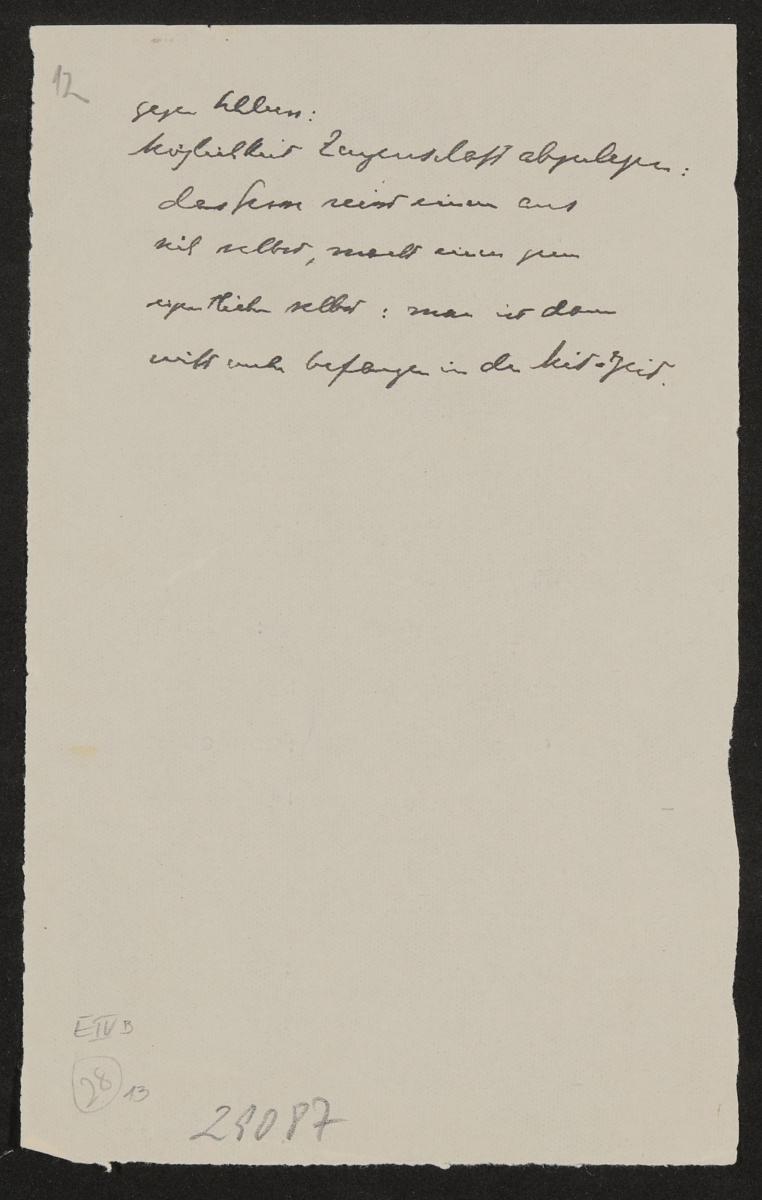 12
gegen
Möglichkeit Zeugenschaft abzulegen:
das reisst einen aus
sich selbst, macht einen zum
eigentlichen selbst: man ist dann
nicht mehr befangen in der
E IV B
28
13
29087